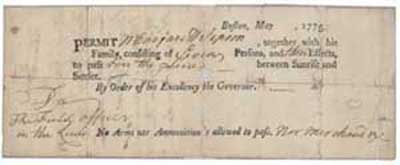 Boston, May , 1775.
PERMIT , together with his
Family, consisting of Seven Persons, and their Effects,
to pass over the Lines between Sunrise and
Sunset.
By Order of his Excellency the Governor.
To
The Field officer
in the Lines
No Arms nor Ammunition is allowed to pass. Nor Merchandize